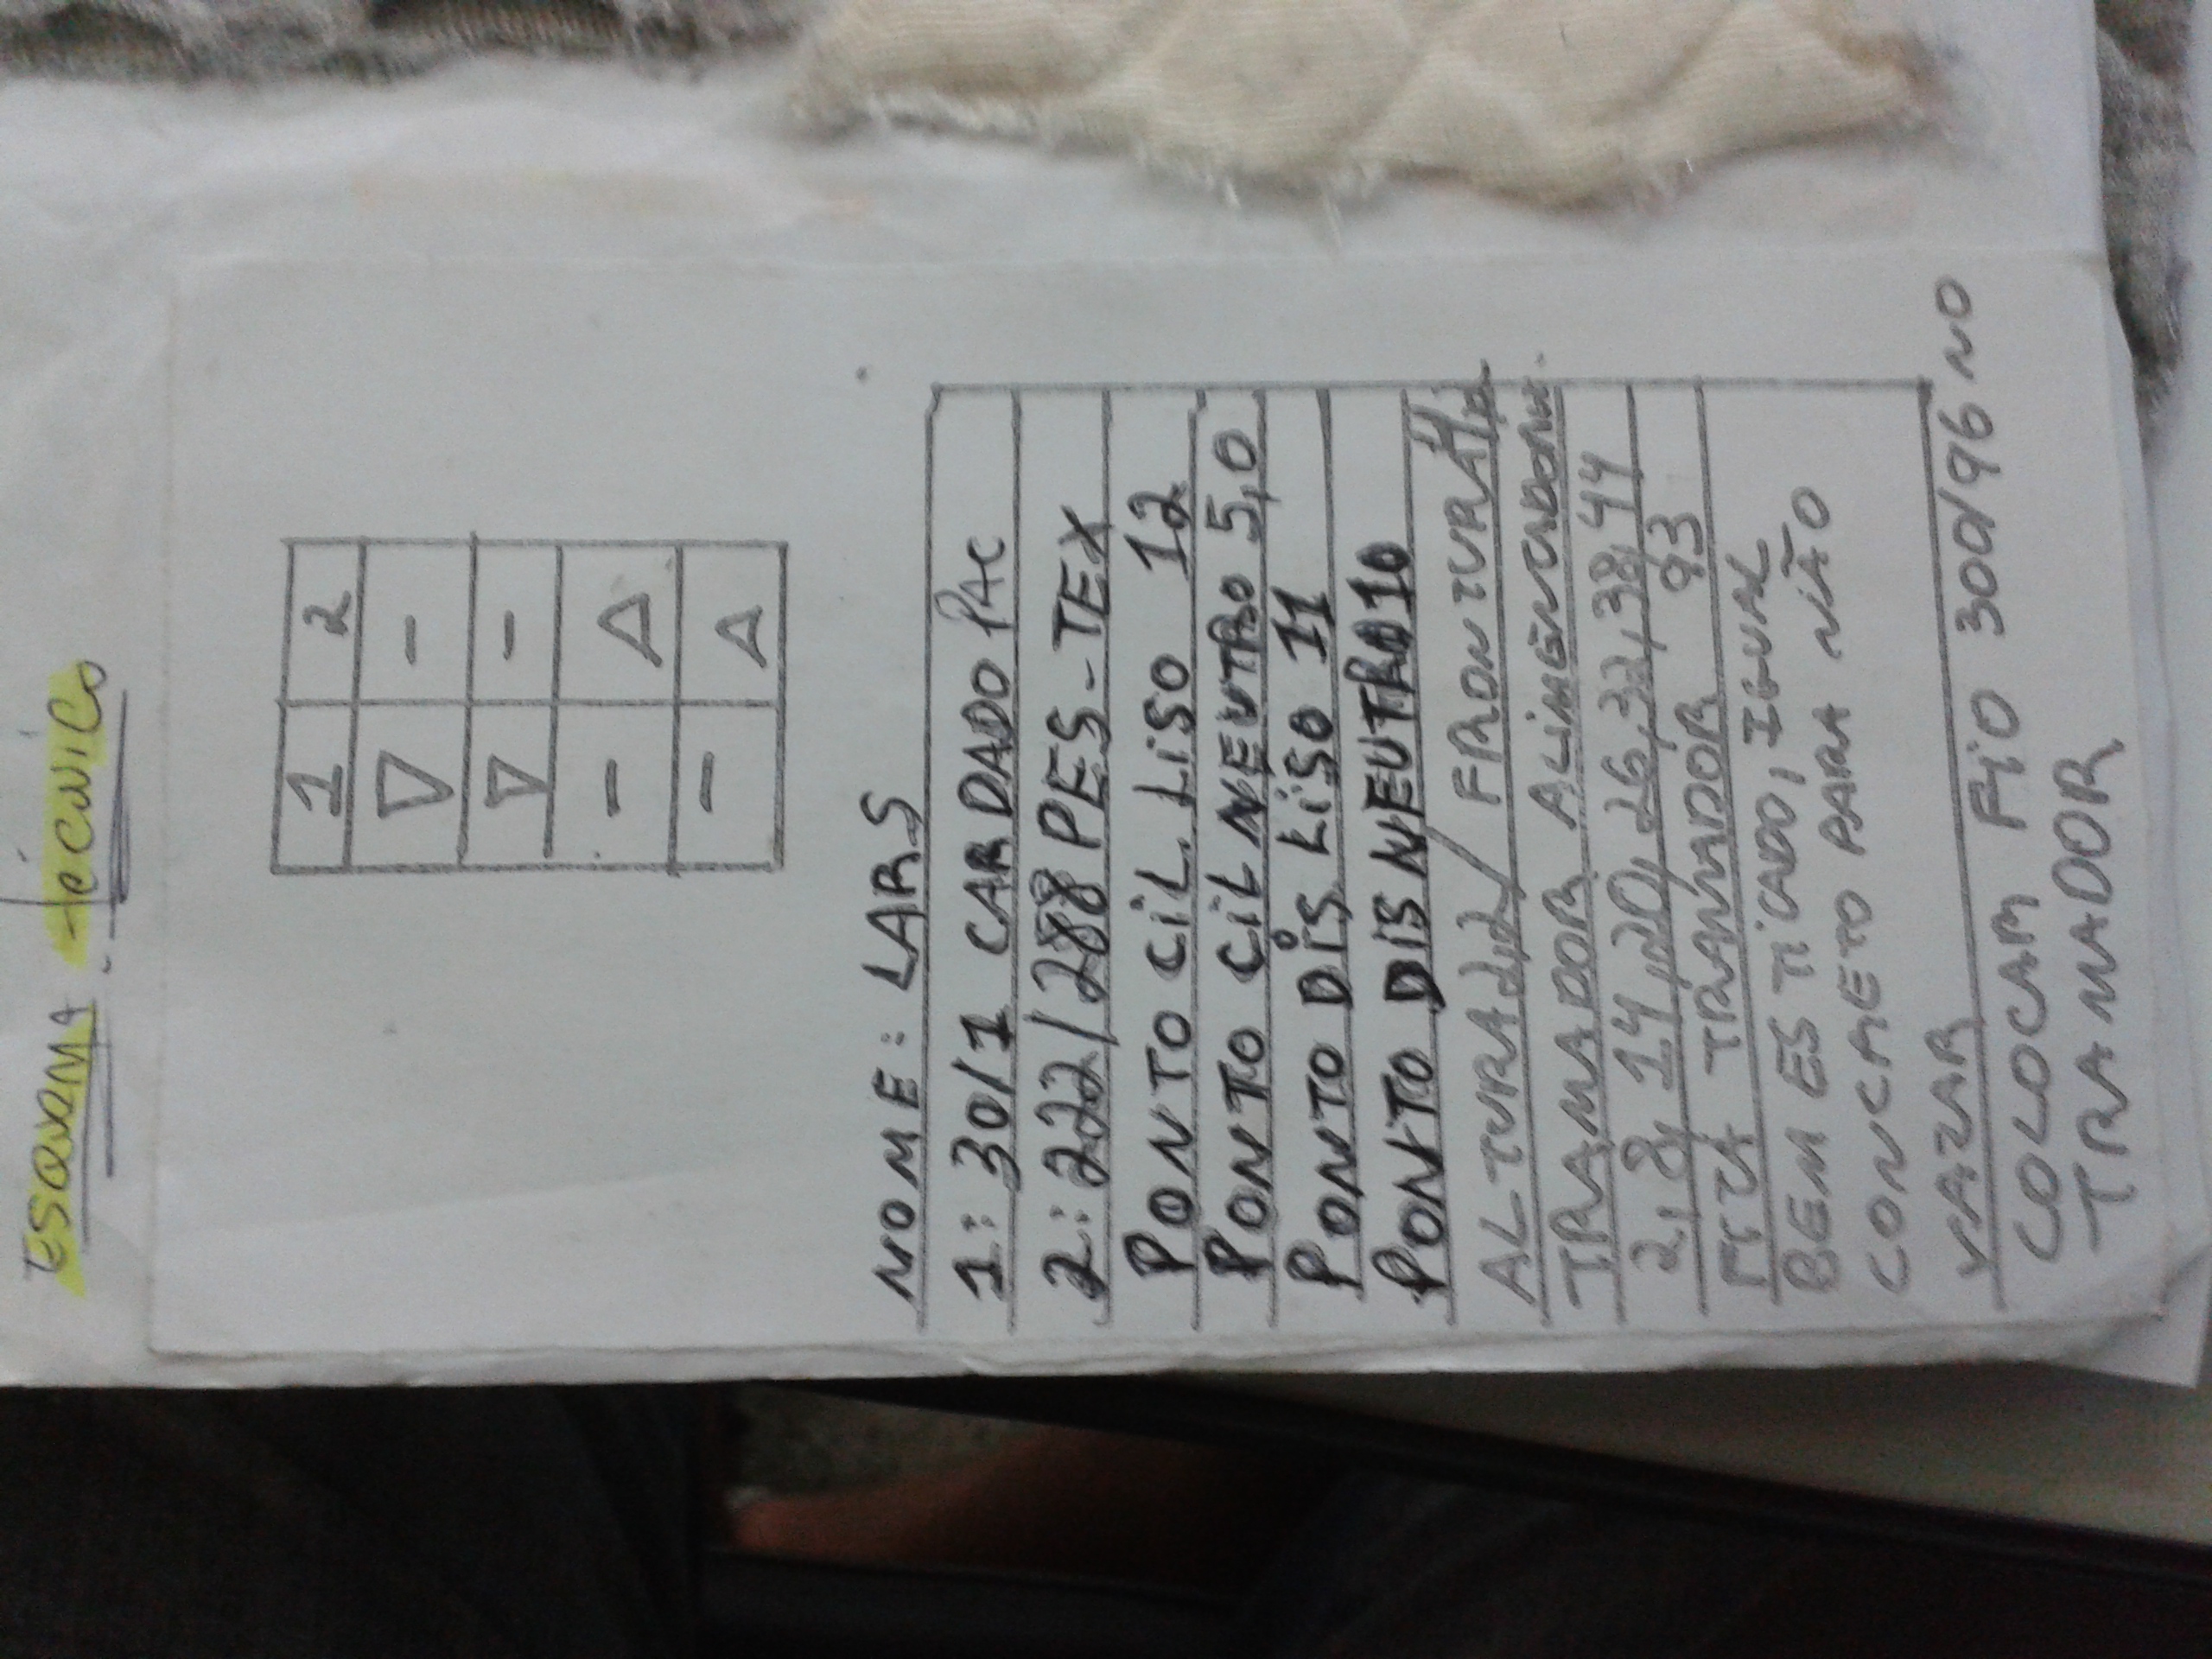 ESQUEMA técnico
1 2
▽ -
▽ -
- △
- △
NOME: LARS
1: 30/1 CARDADO PAC
2: 222/288 PES-TEX
PONTO CiL. LiSO 12
PONTO CiL NEUTRO 5,0
PONTO DiS LiSO 11
PONTO DiS NEUTRO 10
ALTURA 2,2 / FRONTURA
TRAMADOR
2, 8, 14, 20, 26, 32, 38, 44
FITA TRAMADOR 93
BEM ESTiCADO, IGUAL
CONCRETO PARA NÃO
VAZAR
COLOCAR FiO 300/96 NO
TRAMADOR